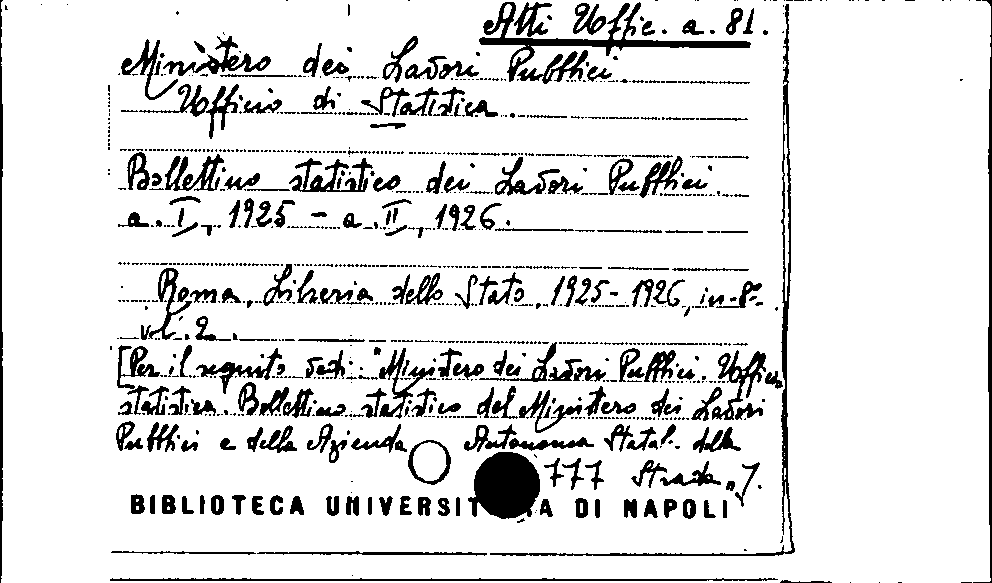 Atti Uffic. a. 81.
Ministero dei Lavori Pubblici.
Ufficio di Statistica.
Bollettino statistico dei Lavori Pubblici.
a. I, 1925 - a. II, 1926.
Roma, Libreria dello Stato, 1925-1926, in-8º.
vol. 2.
[Per il seguito vedi: "Ministero dei Lavori Pubblici. Ufficio
statistica. Bollettino statistico del Ministero dei Lavori
Pubblici e della Azienda Autonoma Statal. della
777 Strada"].
BIBLIOTECA UNIVERSIT A DI NAPOLI